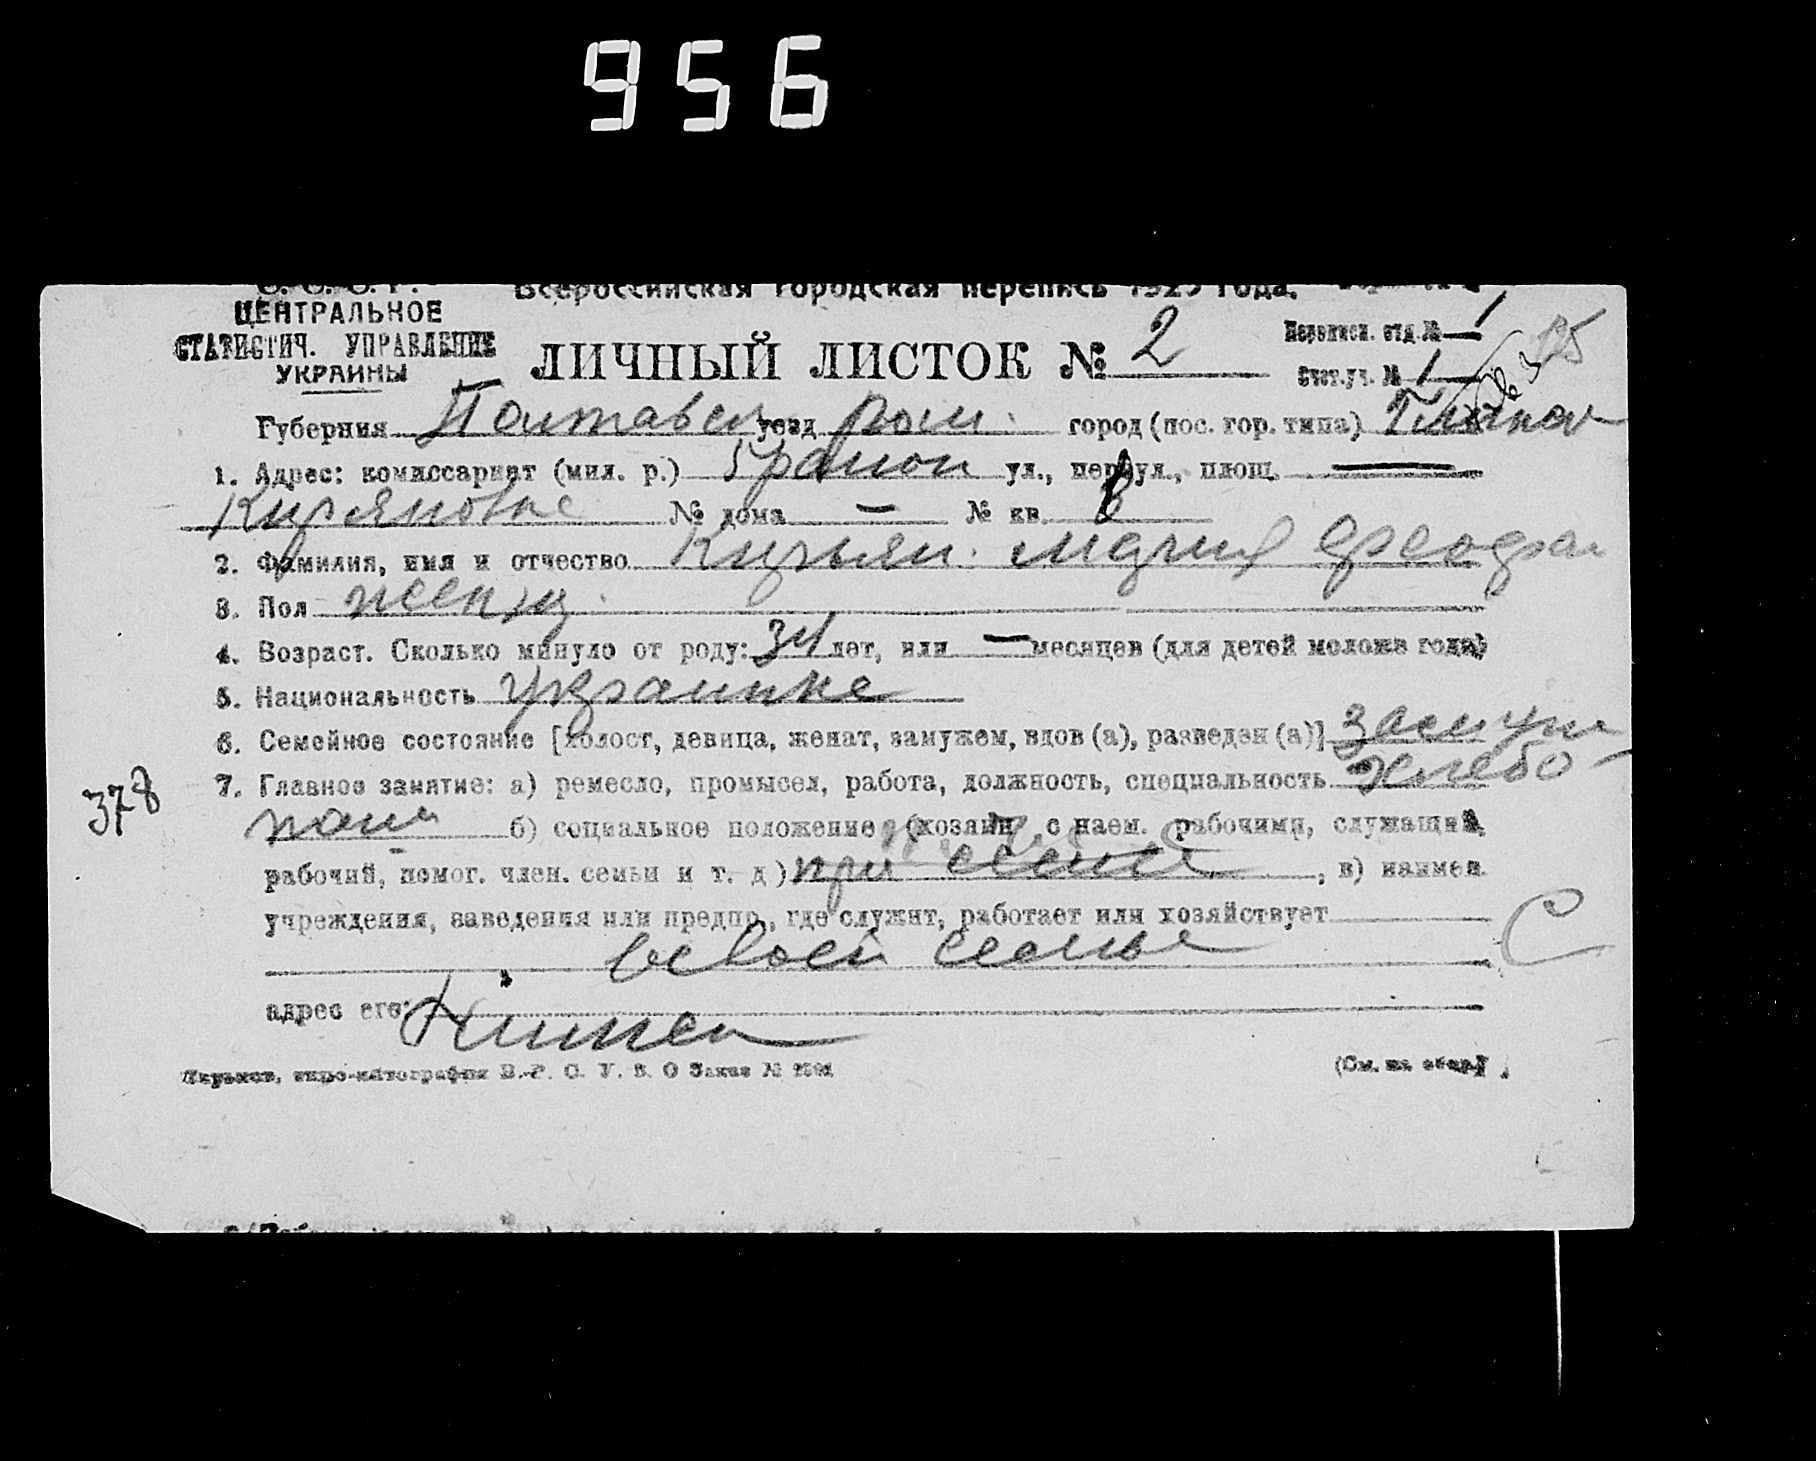 956
С. С. С. Р.
ЦЕНТРАЛЬНОЕ
СТАТИСТИЧ. УПРАВЛЕНИЕ
УКРАИНЫ
Всероссийская городская перепись 1923 года.
ЛИЧНЫЙ ЛИСТОК № 2
Переписн. отд. № 1
Счет. уч. № 1
Губерния Полтавск уезд Ром. город (пос. гор. типа)
1. Адрес: комиссариат (мил. р.) 5 район ул., переул., площ. —
№ дома — № кв.
2. Фамилия, имя и отчество Кирьян. Мария
3. Пол женщ.
4. Возраст. Сколько минуло от роду: 34 лет, или — месяцев (для детей моложе года)
5. Национальность украинка
6. Семейное состояние [холост, девица, женат, замужем, вдов (а), разведен (а)] замуж
7. Главное занятие: а) ремесло, промысел, работа, должность, специальность хлебо-
378
паш б) социальное положение (хозяин с наем. рабочими, служащий,
рабочий, помог. член. семьи и т. д.) при семье ; в) наимен.
учреждения, заведения или предпр., где служит, работает или хозяйствует
в своей семье
С
адрес его:
(См. на обор.)